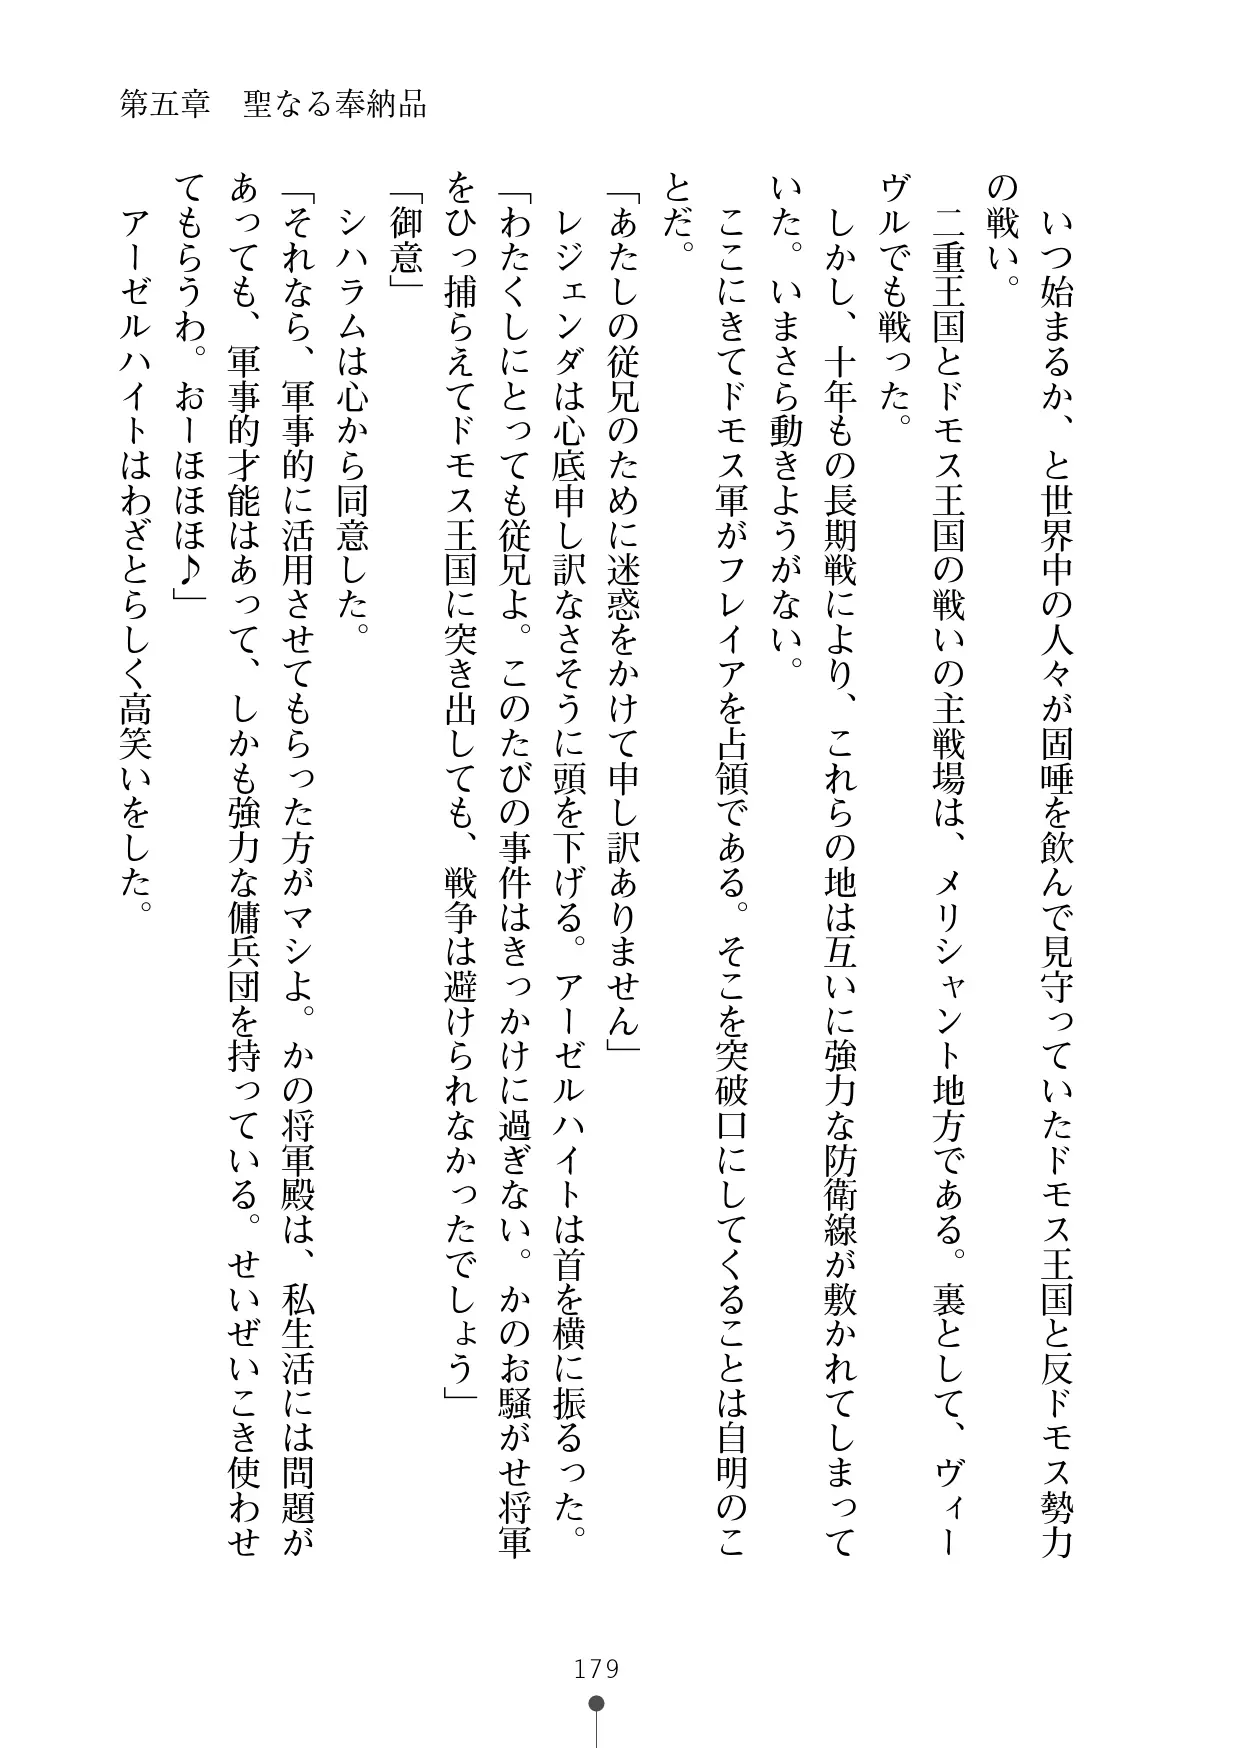 第五章　聖なる奉納品
　いつ始まるか、と世界中の人々が固唾を飲んで見守っていたドモス王国と反ドモス勢力
の戦い。
　二重王国とドモス王国の戦いの主戦場は、メリシャント地方である。裏として、ヴィー
ヴルでも戦った。
　しかし、十年もの長期戦により、これらの地は互いに強力な防衛線が敷かれてしまって
いた。いまさら動きようがない。
　ここにきてドモス軍がフレイアを占領である。そこを突破口にしてくることは自明のこ
とだ。
「あたしの従兄のために迷惑をかけて申し訳ありません」
　レジェンダは心底申し訳なさそうに頭を下げる。アーゼルハイトは首を横に振るった。
「わたくしにとっても従兄よ。このたびの事件はきっかけに過ぎない。かのお騒がせ将軍
をひっ捕らえてドモス王国に突き出しても、戦争は避けられなかったでしょう」
「御意」
　シハラムは心から同意した。
「それなら、軍事的に活用させてもらった方がマシよ。かの将軍殿は、私生活には問題が
あっても、軍事的才能はあって、しかも強力な傭兵団を持っている。せいぜいこき使わせ
てもらうわ。おーほほほ♪」
　アーゼルハイトはわざとらしく高笑いをした。
179